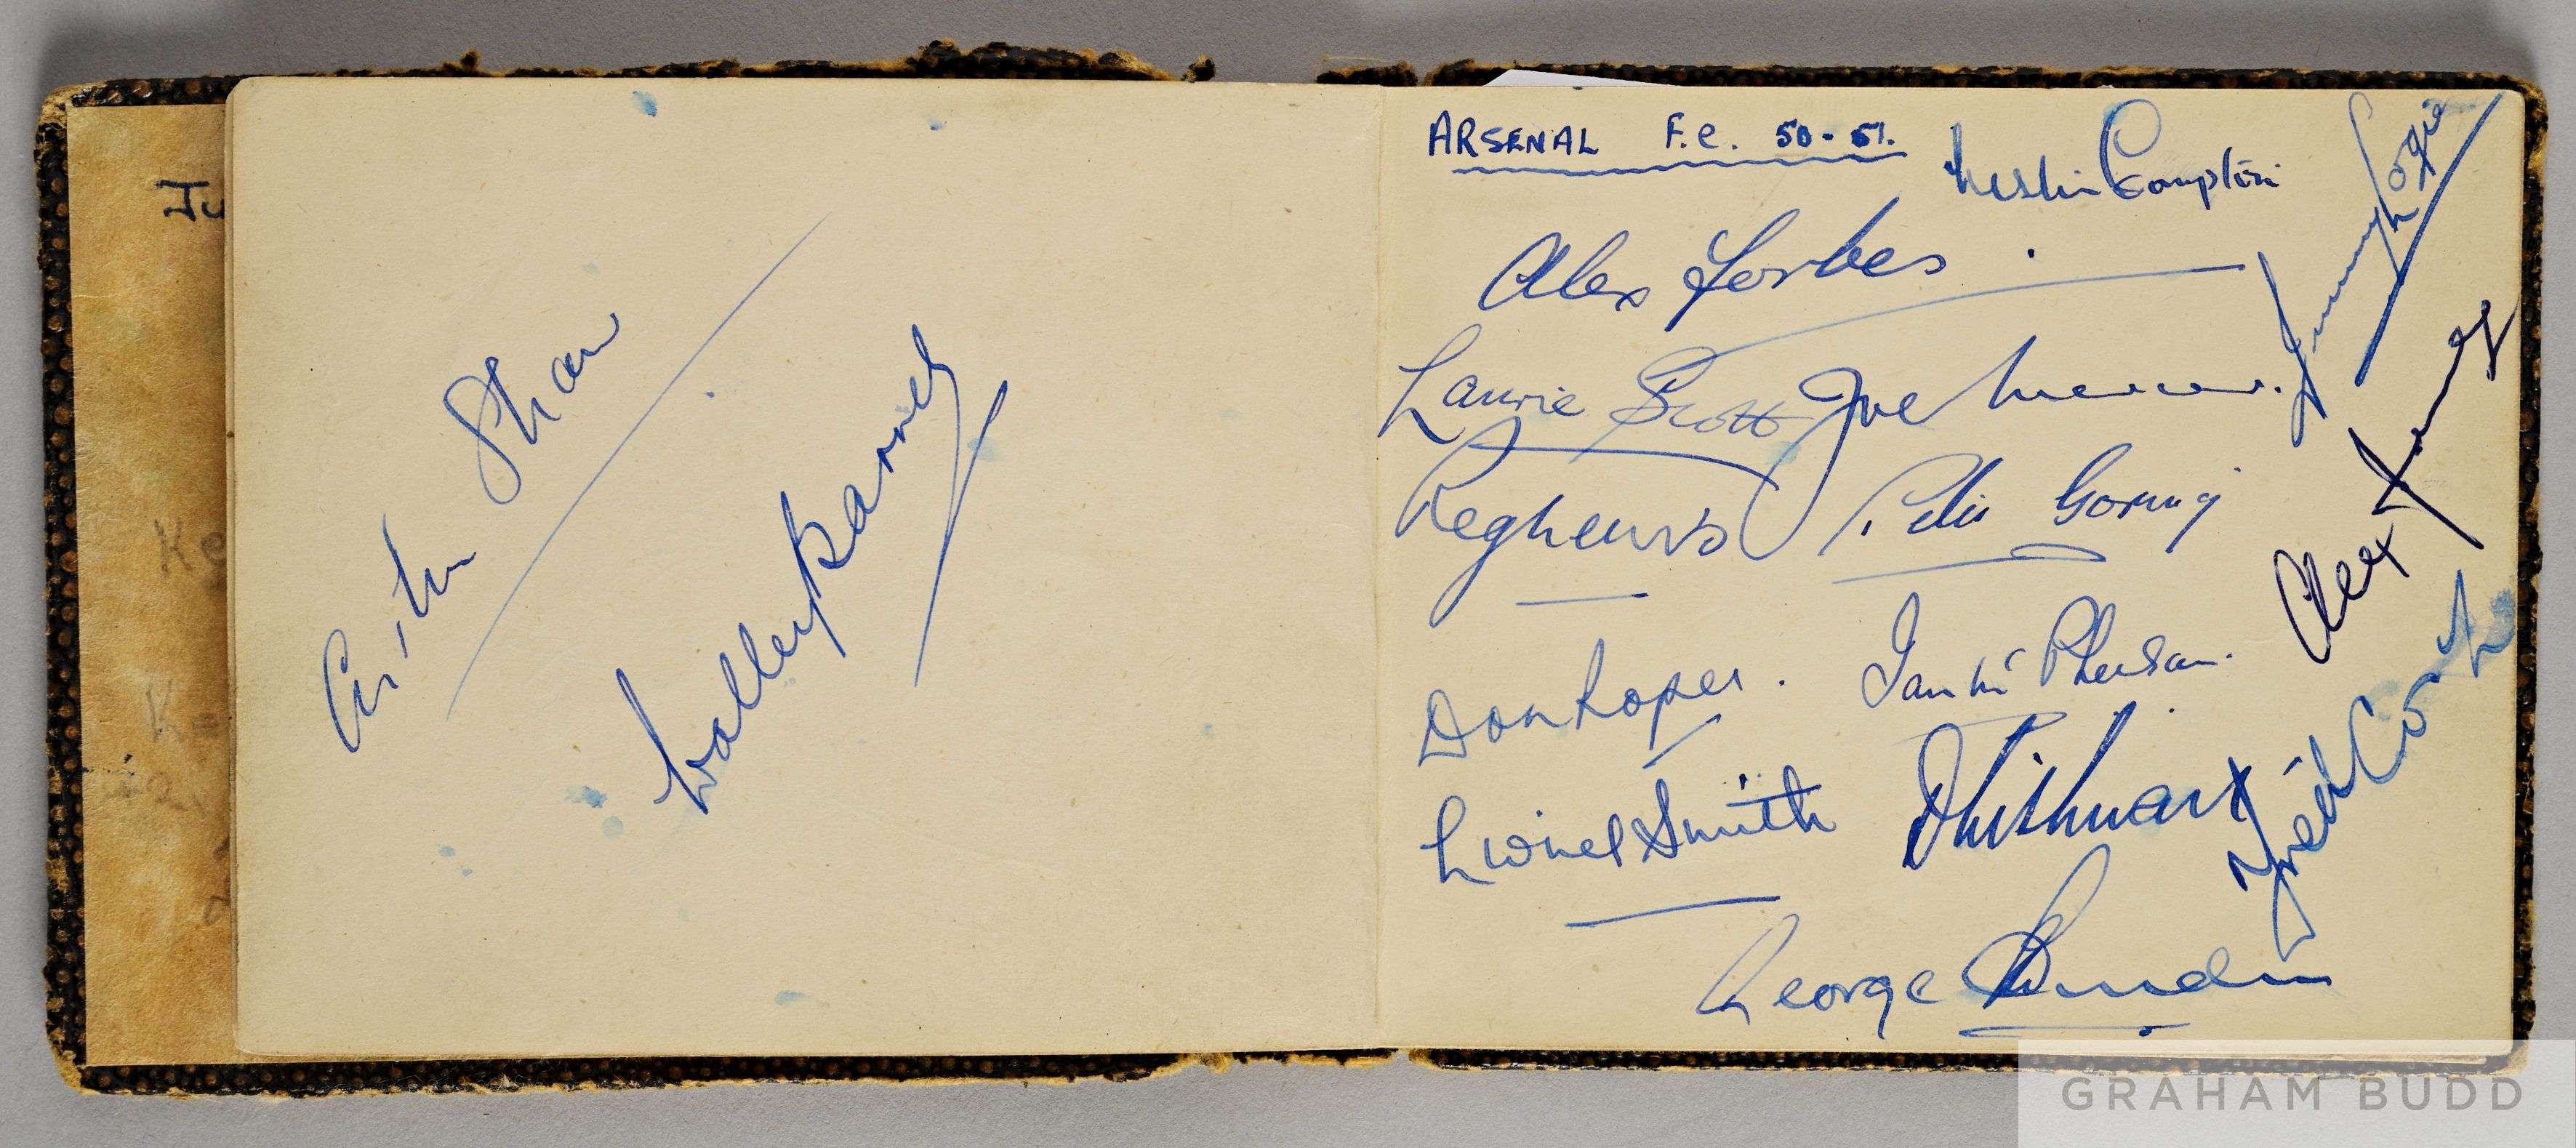 Ju
Ke
K
Arthur Shaw
Walley Barnes
ARSENAL F.C. 50-51.
Leslie Compton
Jimmy Logie
Alex Forbes.
Laurie Scott
Joe Mercer.
Reg Lewis
Peter Goring
Alex James
Don Roper.
Ian McPherson.
Lionel Smith
D Lishman
Freddie Cox
George Swindin
GRAHAM BUDD